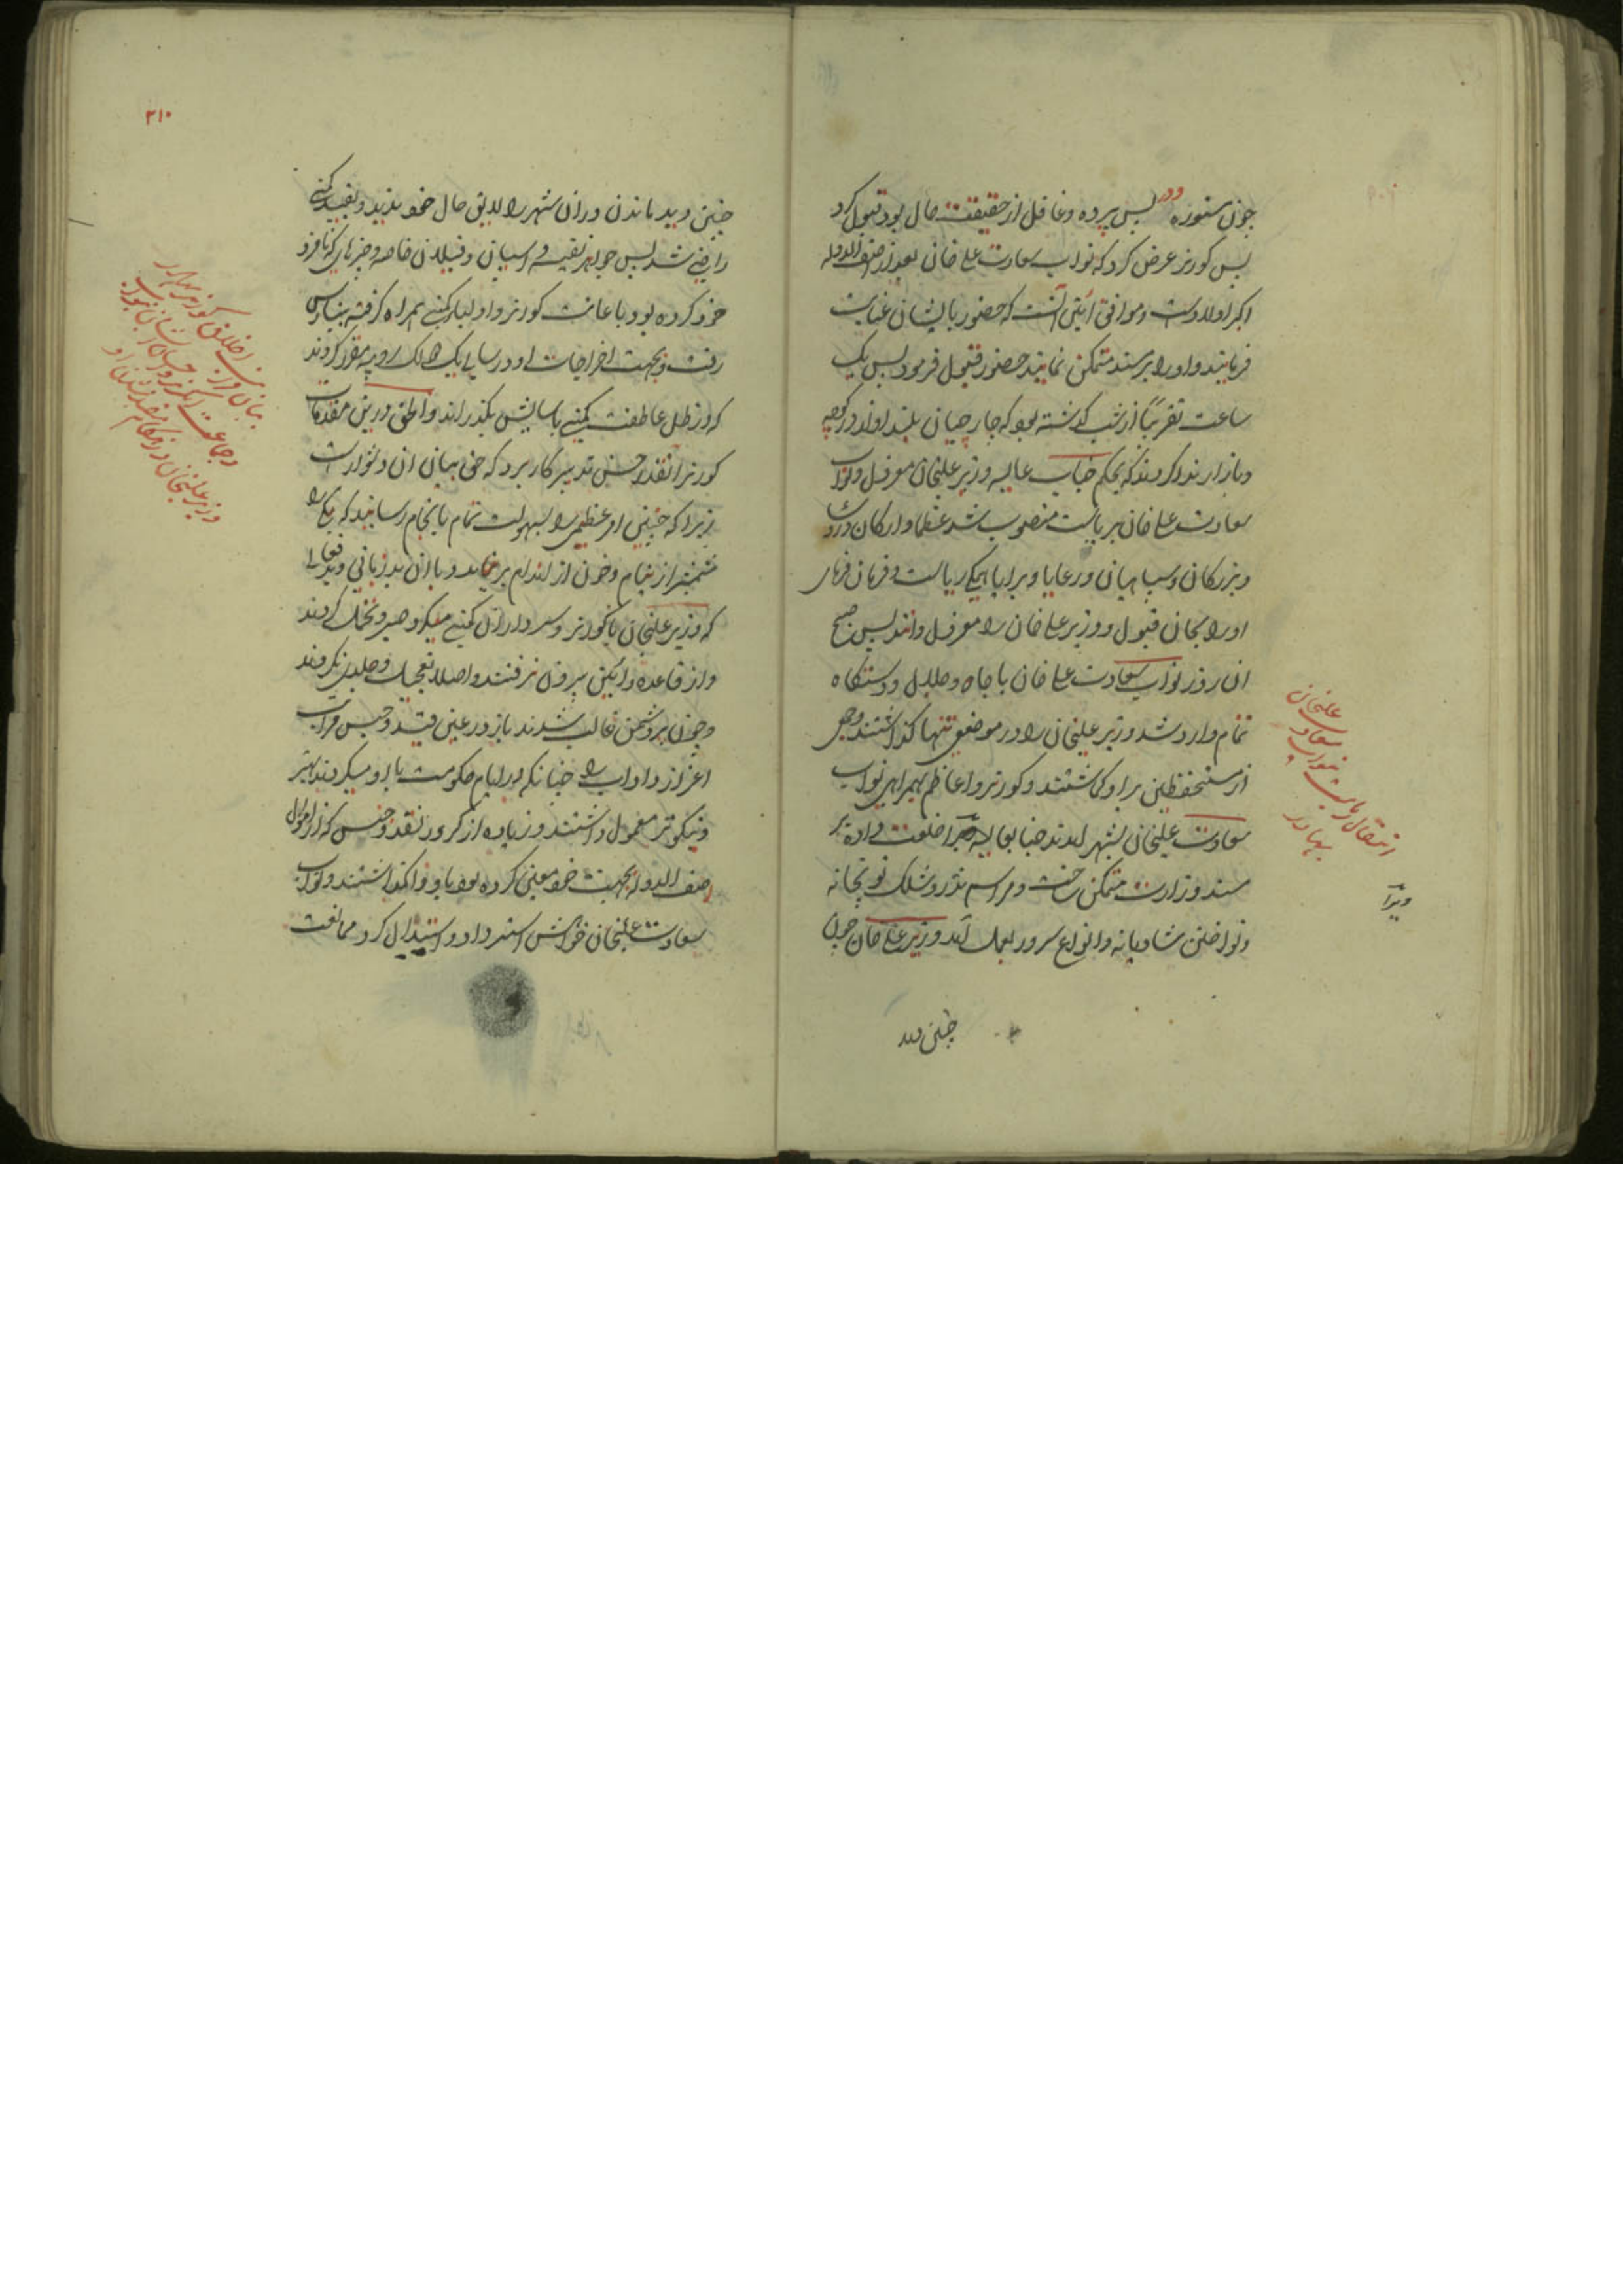 چون مستوره پس پرده و غافل از حقیقت حال بود قبول کرد
پس کورنر عرض کرد که نواب سعادت علی خان بعد از اصف الدوله
اکبر اولاد است و موافق آئین آنست که حضور بایشان عنایت
فرمایند و او را بر مسند متمکن نمایند حضور قبول فرمود پس یک
ساعت تقریباً از شب گذشته بود که جارچیان بلند اواز در کوچه
و بازار ندا کردند که بحکم جناب عالیه وزیر علیخان معزول و نواب
سعادت علی خان بریاست منصوب شد عظما و ارکان دولت
و بزرکان و سپاهیان و رعایا و برایا همکی ریاست و فرمان فرمای
او را بجان قبول و وزیر علی خان را معزول دانند پس صبح
ان روز نواب سعادت علی خان با جاه و جلال و دستکاه
تمام وارد شد وزیر علیخان را در موضعی تنها کذاشتند و جمعی
از مستحفظین بر او کماشتند و کورنر و اعاظم بهمراهی نواب
سعادت علیخان بشهر امدند جنابعالیه ویرا خلعت داده بر
مسند وزارت متمکن ساخت و مراسم نذر و شلک توپخانه
و نواختن شادیانه و انواع سرور بعمل آمد و وزیر علی خان چون
چنین دید
انتقال ریاست بنواب سعادت علیخان
بهادر
ویرا
۲۱۰
چنین دید ماندن در ان شهر را لایق حال خود ندید و بقید کمپنی
راضی شد پس جواهر نفیسه و اسپان و فیلان خاصه و چیزهای که نامزد
خود کرده بود با عانت کورنر و اولیاء کمپنی همراه کرفته ببنارس
رفت و بجهت اخراجات او در سالی یک لک روپیه مقرر کردند
که در ظل عاطفت کمپنی باسایش بکذراند و الحق درین مقدمات
کورنر آنقدر حسن تدبیر کار برد که حق بیان ان دشوار است
زیرا که چنین امر عظیمی را بسهولت تمام بانجام رسانید که یکی را
شمشیر از نیام و خون از اندام بر نیامد و با ان بد زبانی و بد لقائی
که وزیر علیخان با کورنر و سرداران کمپنی میکرد صبر و تحمل کردند
و از قاعده و آئین بیرون نرفتند و اصلا تعجیل و جلدی نکردند
و چون بر دشمن غالب شدند باز در عین قید و حبس مراتب
اعزاز و اداب را چنانکه در ایام حکومت با او میکردند بهتر
و نیکوتر معمول داشتند و زیاده از کرور نقد و جنس که از اموال
اصف الدوله بجهت خود معین کرده بود باو واکذاشتند و نواب
سعادت علیخان خواهش استرداد و استبدال کرد ممانعت
بیان اخلاق کورنر بهادر
وزیر علیخان در مقام